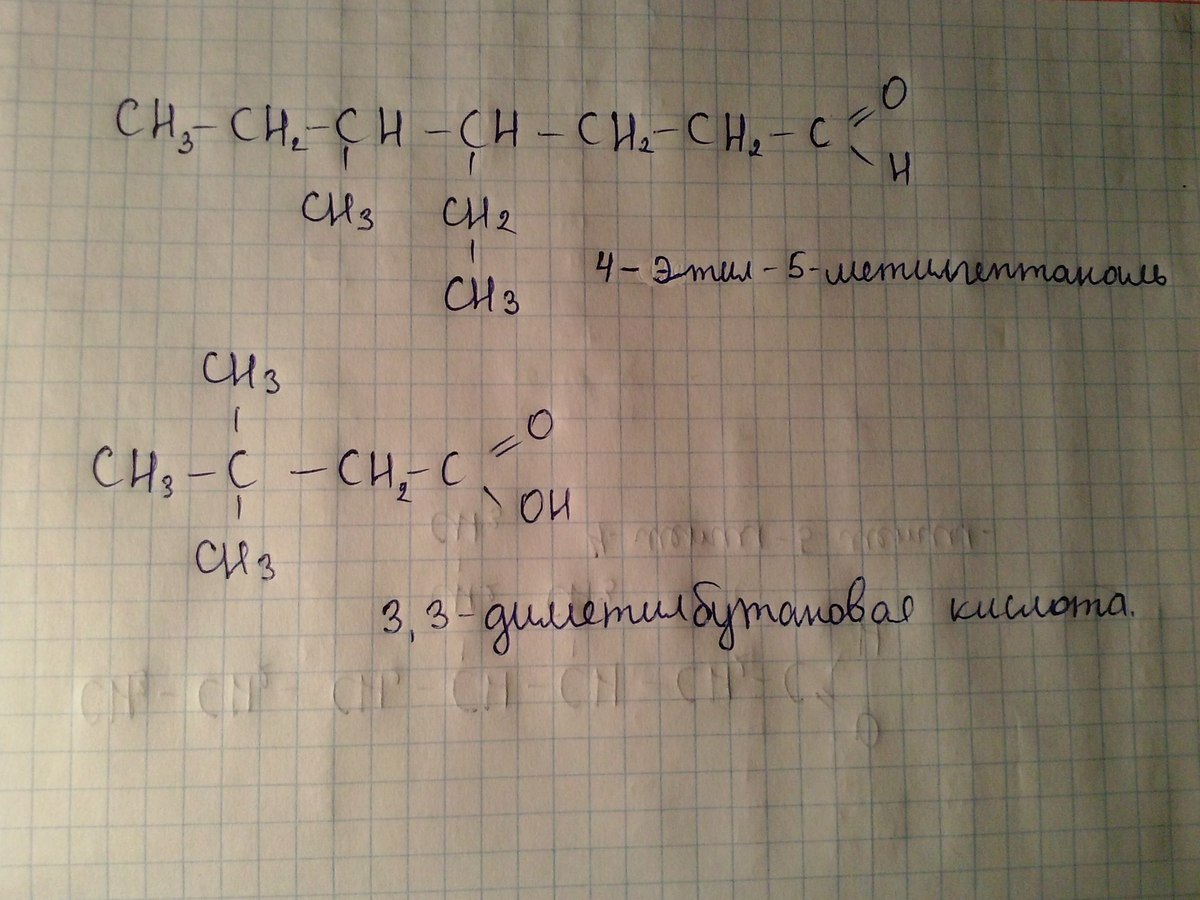 CH₃ – CH₂ – CH – CH – CH₂ – CH₂ – C
=O
H
CH₃ CH₂
CH₃
4-этил-5-метилгептаналь
CH₃
CH₃ – C – CH₂ – C
=O
OH
CH₃
3,3-диметилбутановая кислота.